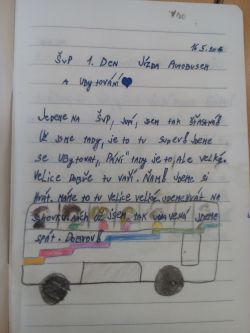 16.5.2016
ŠVP 1. DEN JÍZDA AUTOBUSEM
A UBYTOVÁNÍ
JEDEME NA ŠVP, JSEM TAK ŠŤASTNÁ!
UŽ JSME TADY, JE TO TU SUPER! JDEME
SE UBYTOVAT, PÁNI TADY JE TO, ALE VELKÉ.
VELICE DOBŘE TU VAŘÍ. ŇAM! JDEME SI
HRÁT. MÁME TO TU VELICE VELKÉ, JDEME HRÁT NA
UŽ JSEM TAK UNAVENÁ JDEME
SPÁT. DOBROU!